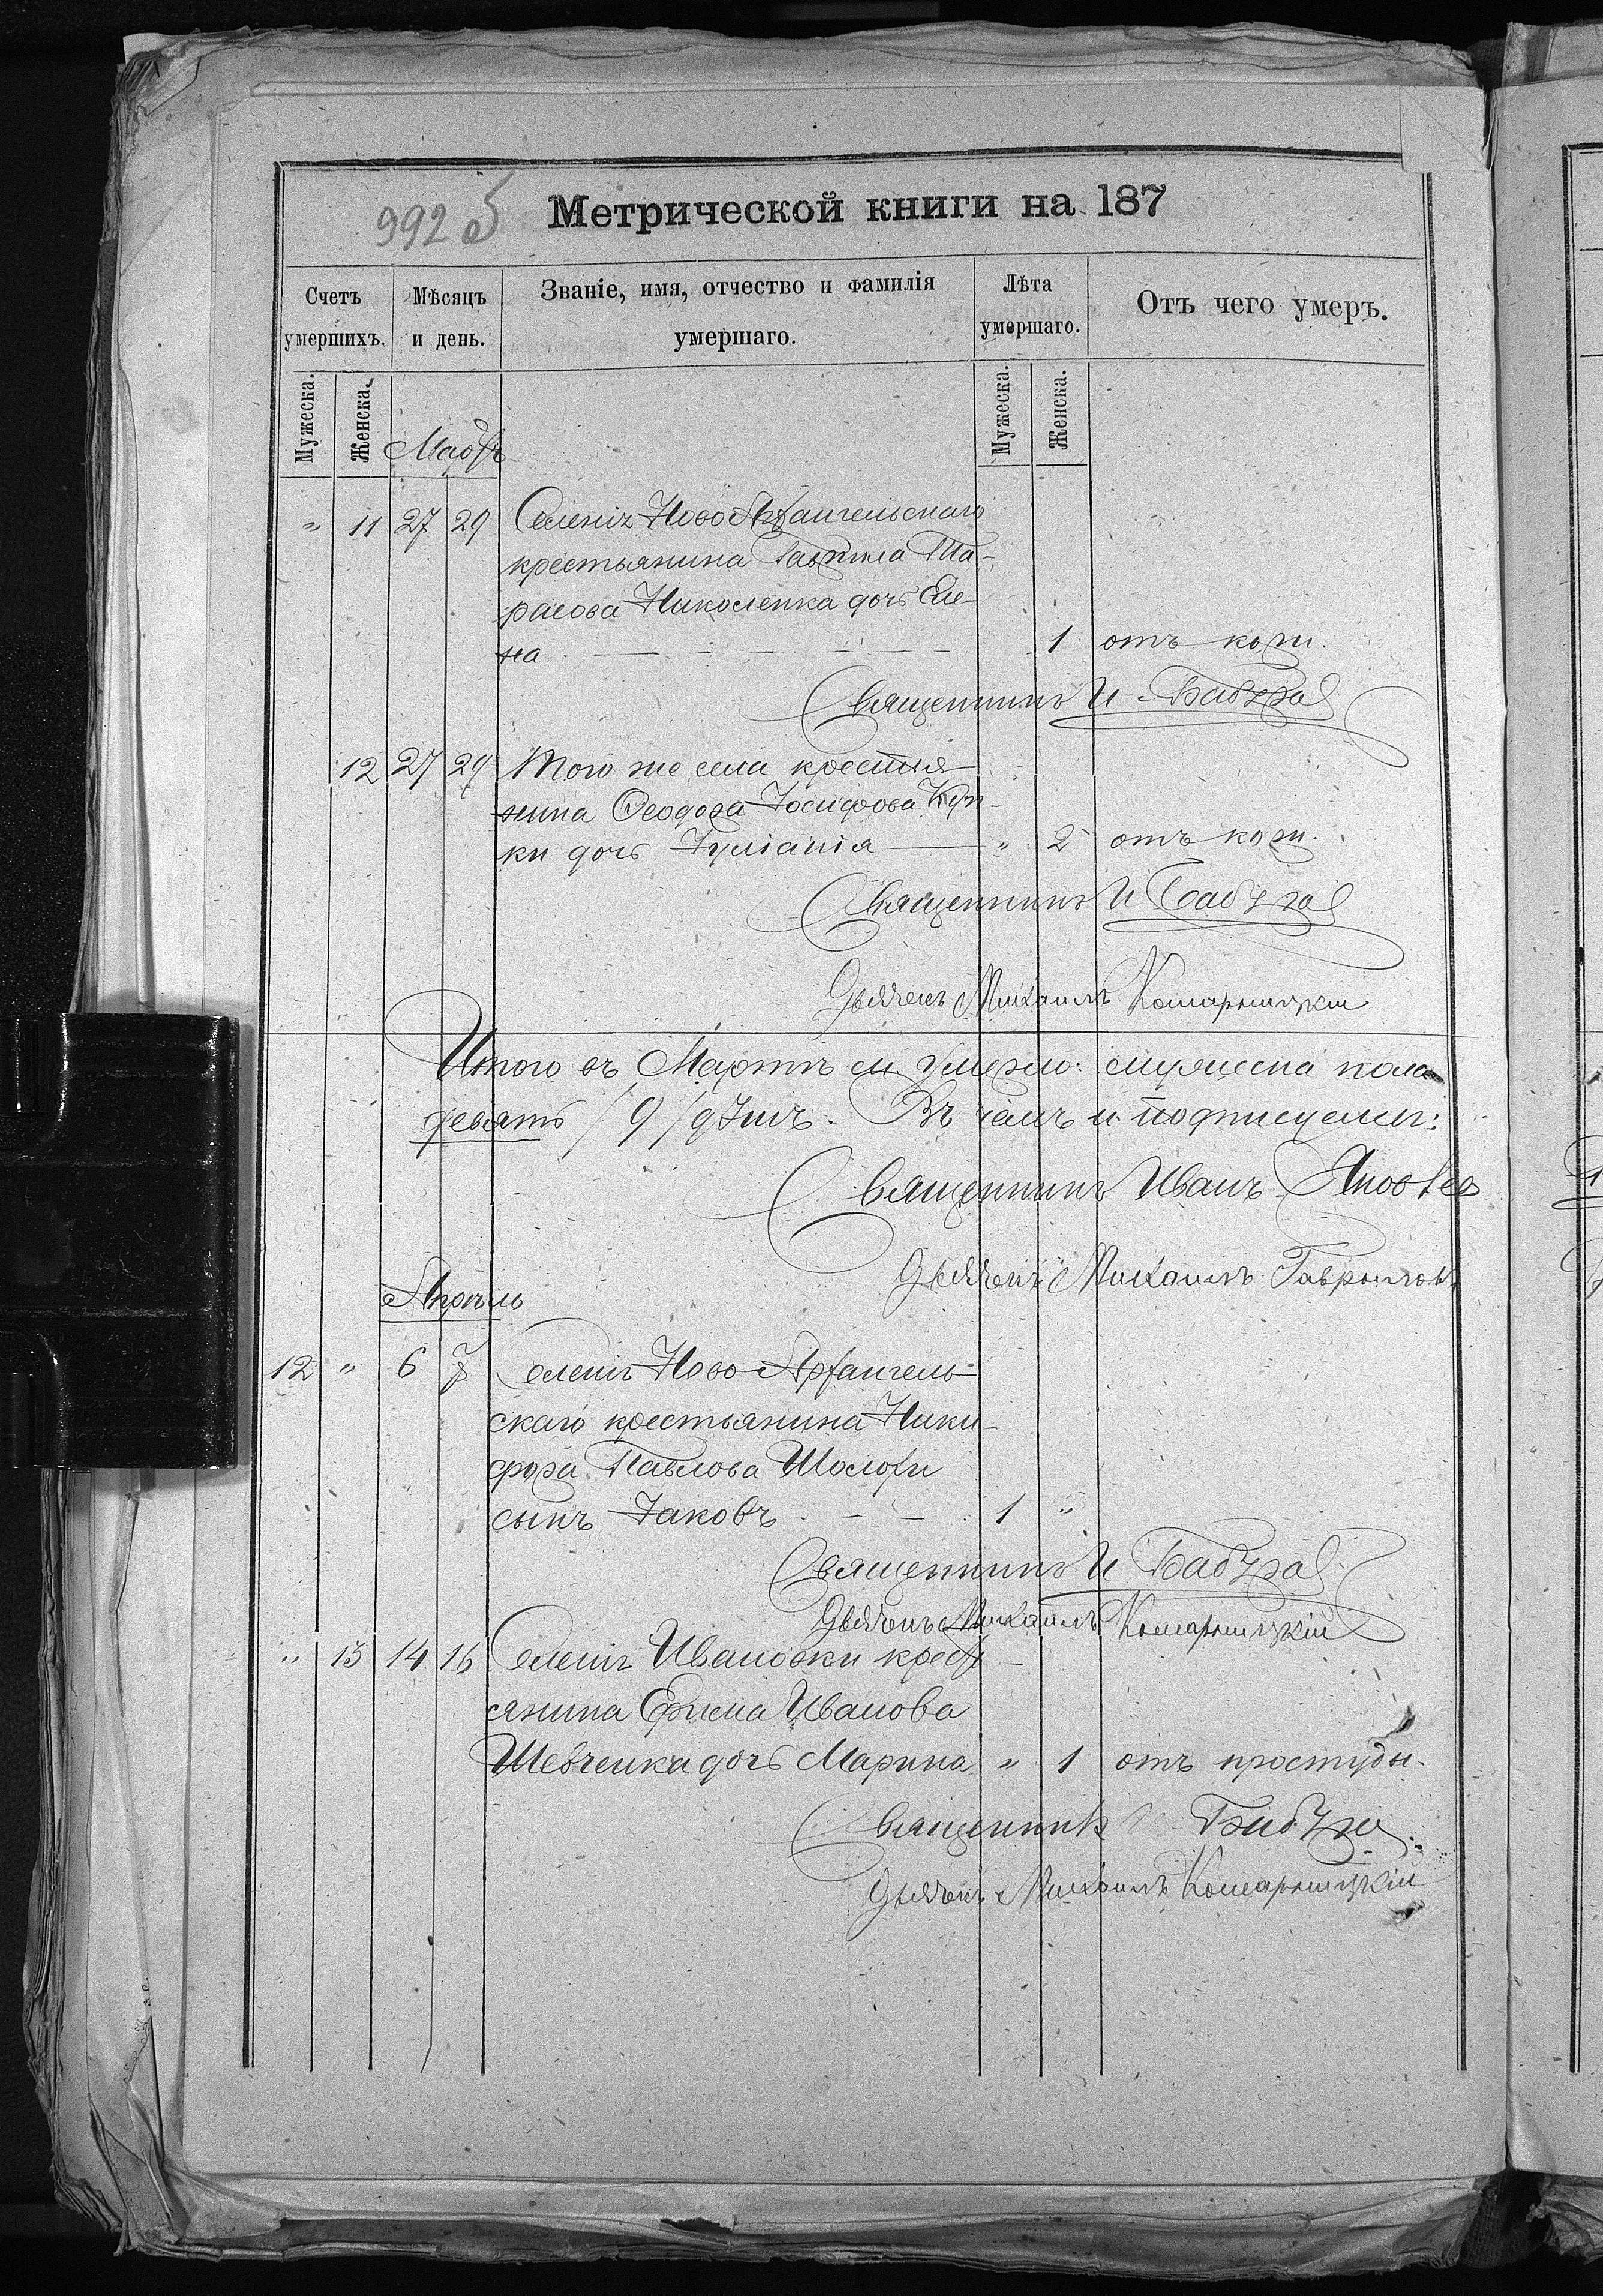 992 б
Метрической книги на 187
Счетъ умершихъ.
Мѣсяцъ и день.
Званіе, имя, отчество и фамилія умершаго.
Лѣта умершаго.
Отъ чего умеръ.
Мужеска. Женска. Мартъ Мужеска. Женска.
" 11 27 29 Селенія Ново Архангельскаго
крестьянина Гавріила Та-
расова Николенка дочь Еле-
на 1 отъ кори.
Священникъ И Бабура
12 27 29 Того же села крестья
нина Ѳеодора Іосифова
ки дочь Іуліанія " 2 отъ кори.
Священникъ И Бабура
Дьячекъ Михаилъ Комарницкій
Итого въ Мартѣ м. умерло: мужеска пола
девять /9/ душъ. Въ чемъ и подписуемся:
Священникъ Иванъ Яковлев
Дьячекъ Михаилъ Гаврилов
Апрѣль
12 " 6 7 Селенія Ново-Архангель-
скаго крестьянина Ники-
фора Павлова Шолохи
сынъ Іаковъ 1 "
Священникъ И Бабура
Дьячекъ Михаилъ Комарницкій
" 13 14 16 Селенія Ивановки крест-
янина Ефима Иванова
Шевченка дочь Марина " 1 отъ простуды.
Священникъ И Бабура
Дьячекъ Михаилъ Комарницкій